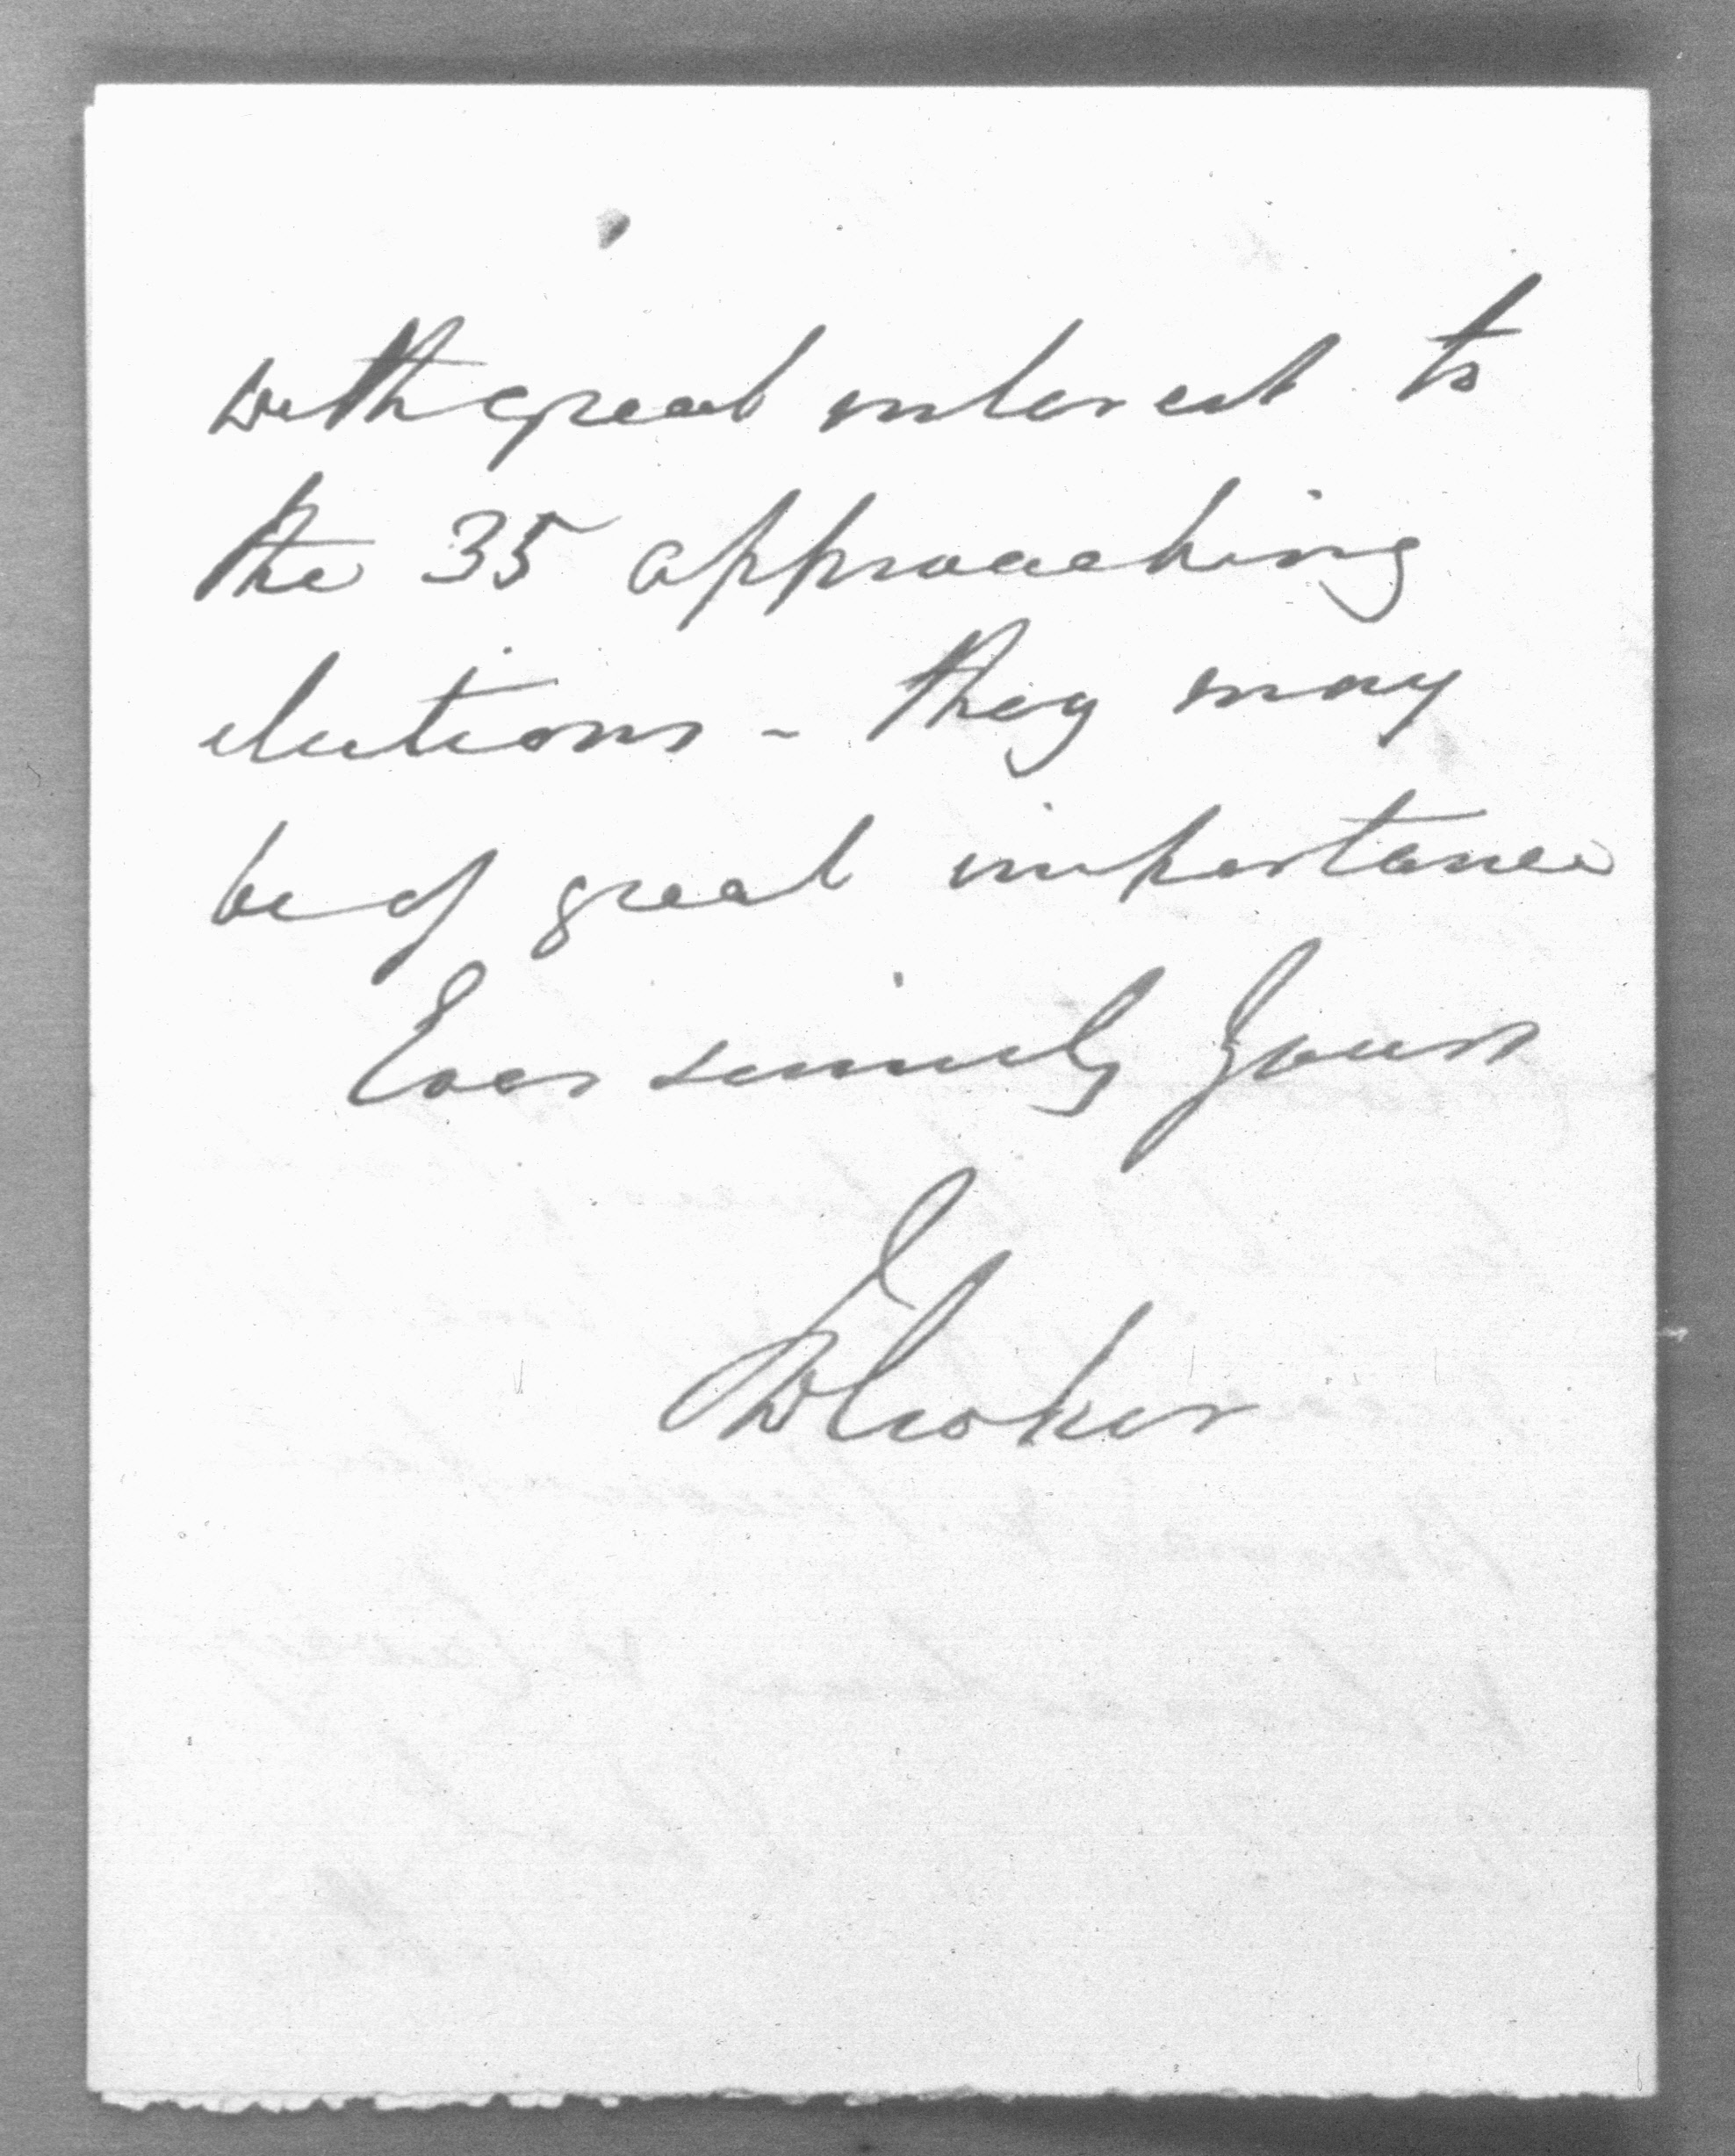 with great interest to
the 35 approaching
elections - they may
be of great importance
Ever sincerely Yours